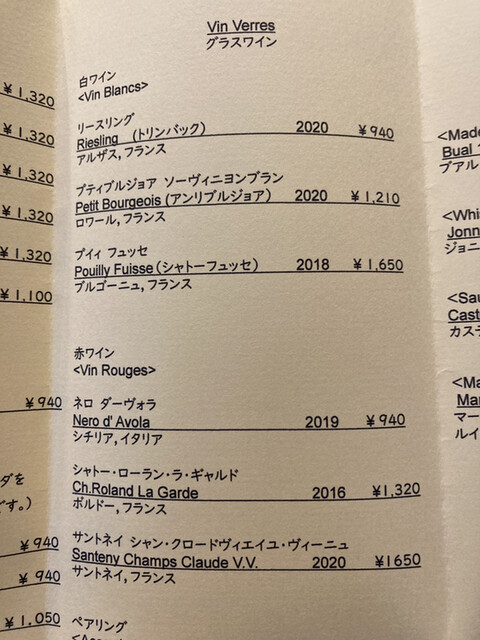 Vin Verres
グラスワイン
白ワイン
<Vin Blancs>
リースリング
Riesling (トリンバック) 2020 ¥940
アルザス,フランス
プティブルジョア ソーヴィニヨンブラン
Petit Bourgeois (アンリブルジョア) 2020 ¥1,210
ロワール,フランス
プイィ フュッセ
Pouilly Fuisse (シャトーフュッセ) 2018 ¥1,650
ブルゴーニュ,フランス
赤ワイン
<Vin Rouges>
ネロ ダーヴォラ
Nero d' Avola 2019 ¥940
シチリア,イタリア
シャトー・ローラン・ラ・ギャルド
Ch.Roland La Garde 2016 ¥1,320
ボルドー,フランス
サントネイ シャン・クロードヴィエイユ・ヴィーニュ
Santeny Champs Claude V.V. 2020 ¥1650
サントネイ,フランス
ペアリング
¥1,320
¥1,320
¥1,320
¥1,320
¥1,320
¥1,100
¥940
ダを
です。)
¥940
¥940
¥1,050
<Made
Bual 1
ブアル
<Whis
Jonn
ジョニ
<Sau
Cast
カステ
<Ma
Mar
マー
ルイ